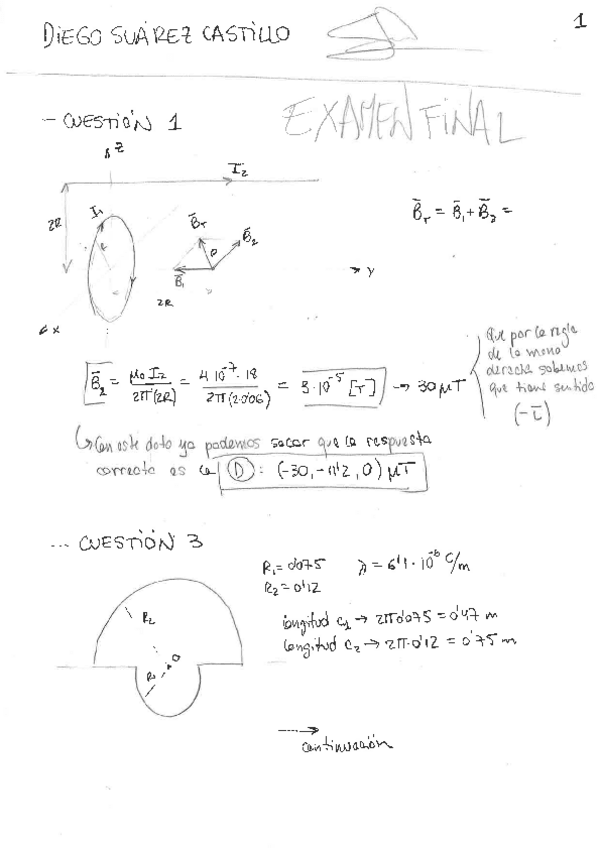 DIEGO SUÁREZ CASTILLO
1
EXAMEN FINAL
- CUESTIÓN 1
Z
I2
2R
I1
R
B̄T
B̄2
P
B̄1
2R
Y
X
B̄T = B̄1 + B̄2 =
B̄2 = μ0 I2 / 2π(2R) = 4·10^-7·18 / 2π(2·0'06) = 3·10^-5 [T] → 30 μT
Que por la regla
de la mano
derecha sabemos
que tiene sentido
(-ī)
↳ Con este dato ya podemos sacar que la respuesta
correcta es la (D): (-30, -11'2, 0) μT
... CUESTIÓN 3
R1 = 0'075 λ = 6'1·10^-6 C/m
R2 = 0'12
longitud c1 → 2π0'075 = 0'47 m
longitud c2 → 2π·0'12 = 0'75 m
R2
O
R1
continuación